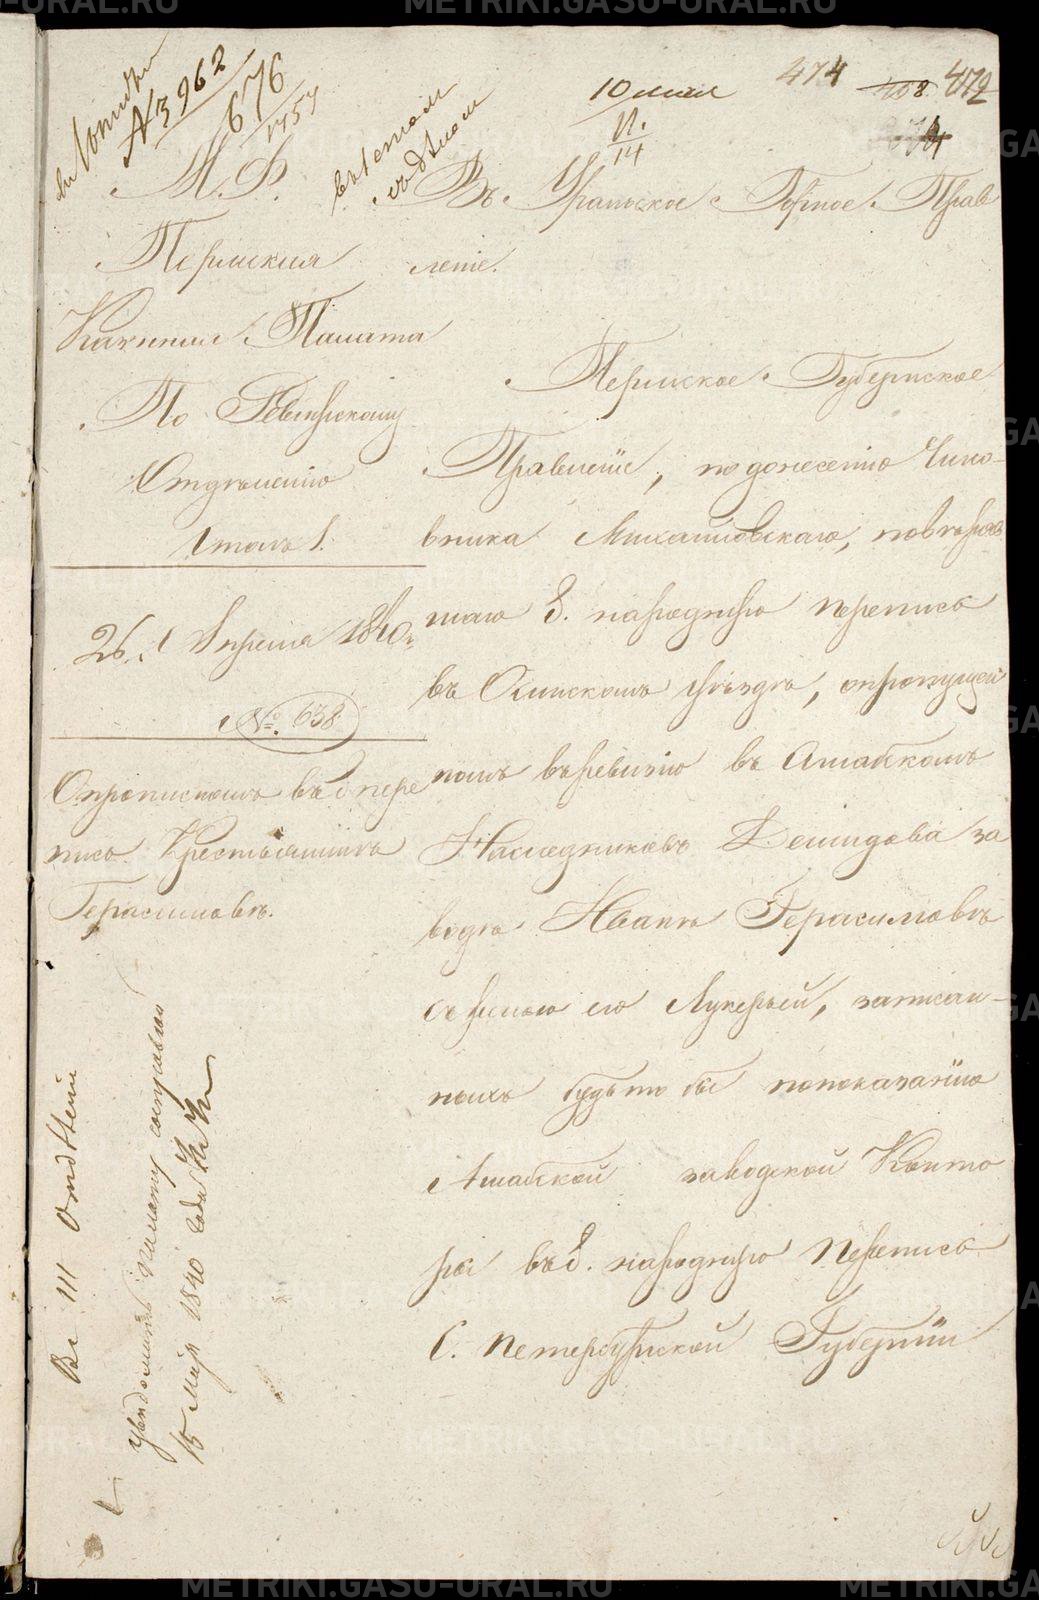 № 3962
676
1757
10 мая
474
408
472
М. Ф.
Пермская
Казенная Палата
По Ревизскому
Отделенію
Столъ 1.
26. Апреля 1840 г.
№. 638
О прописномъ въ 8 пере
пись Крестьянинѣ
Герасимовѣ.
Въ Уральское Горное Прав
леніе.
Пермское Губернское
Правленіе, по донесенію Чино-
вника Михайловскаго, повѣряв
шаго 8. народную перепись
въ Осинскомъ уѣздѣ, о пропущен
номъ въ ревизію въ Ашабскомъ
Наследниковъ Демидова за
водѣ Иванѣ Герасимовѣ
съ женою его Лукерьей, записан-
ныхъ будьто бы по показанію
Ашабской заводской Конто
ры въ 8. народную перепись
С. Петербургской Губерніи
Въ III Отдѣленіи
уведомить палату
15 мая 1840 года
METRIKI.GASU-URAL.RU